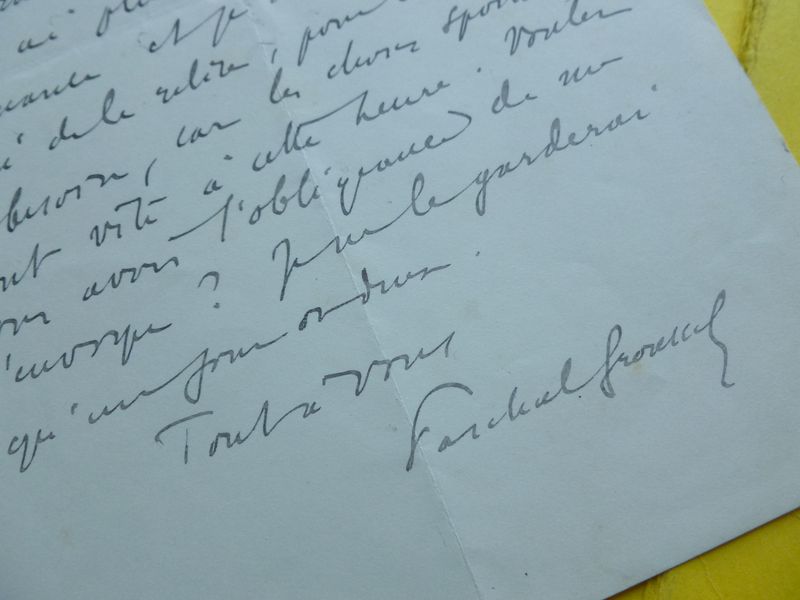 ai
et je
de le relire, pour
besoin, car les choses
vite à cette heure. Voulez
vous avoir l'obligeance de me
l'envoyer ? Je ne le garderai
qu'un jour ou deux.
Tout à vous
Paschal Grousset